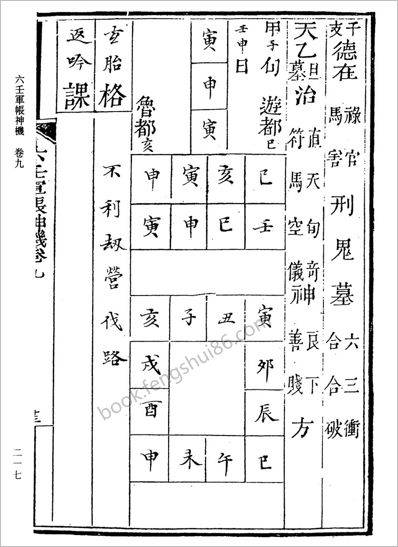 干支德在祿官馬害刑鬼墓六合三合衝破
天乙旦墓治直符天馬旬空奇儀神神良善下賤方
甲子旬 遊都巳
壬申日
寅申寅
魯都亥
巳亥寅申
壬巳申寅
寅丑子亥
卯 戌
辰 酉
巳午未申
玄胎格
返吟課
不利劫營伐路
六壬軍帳神機卷九
六壬軍帳神機 卷九
二一七
book.fengshui86.com